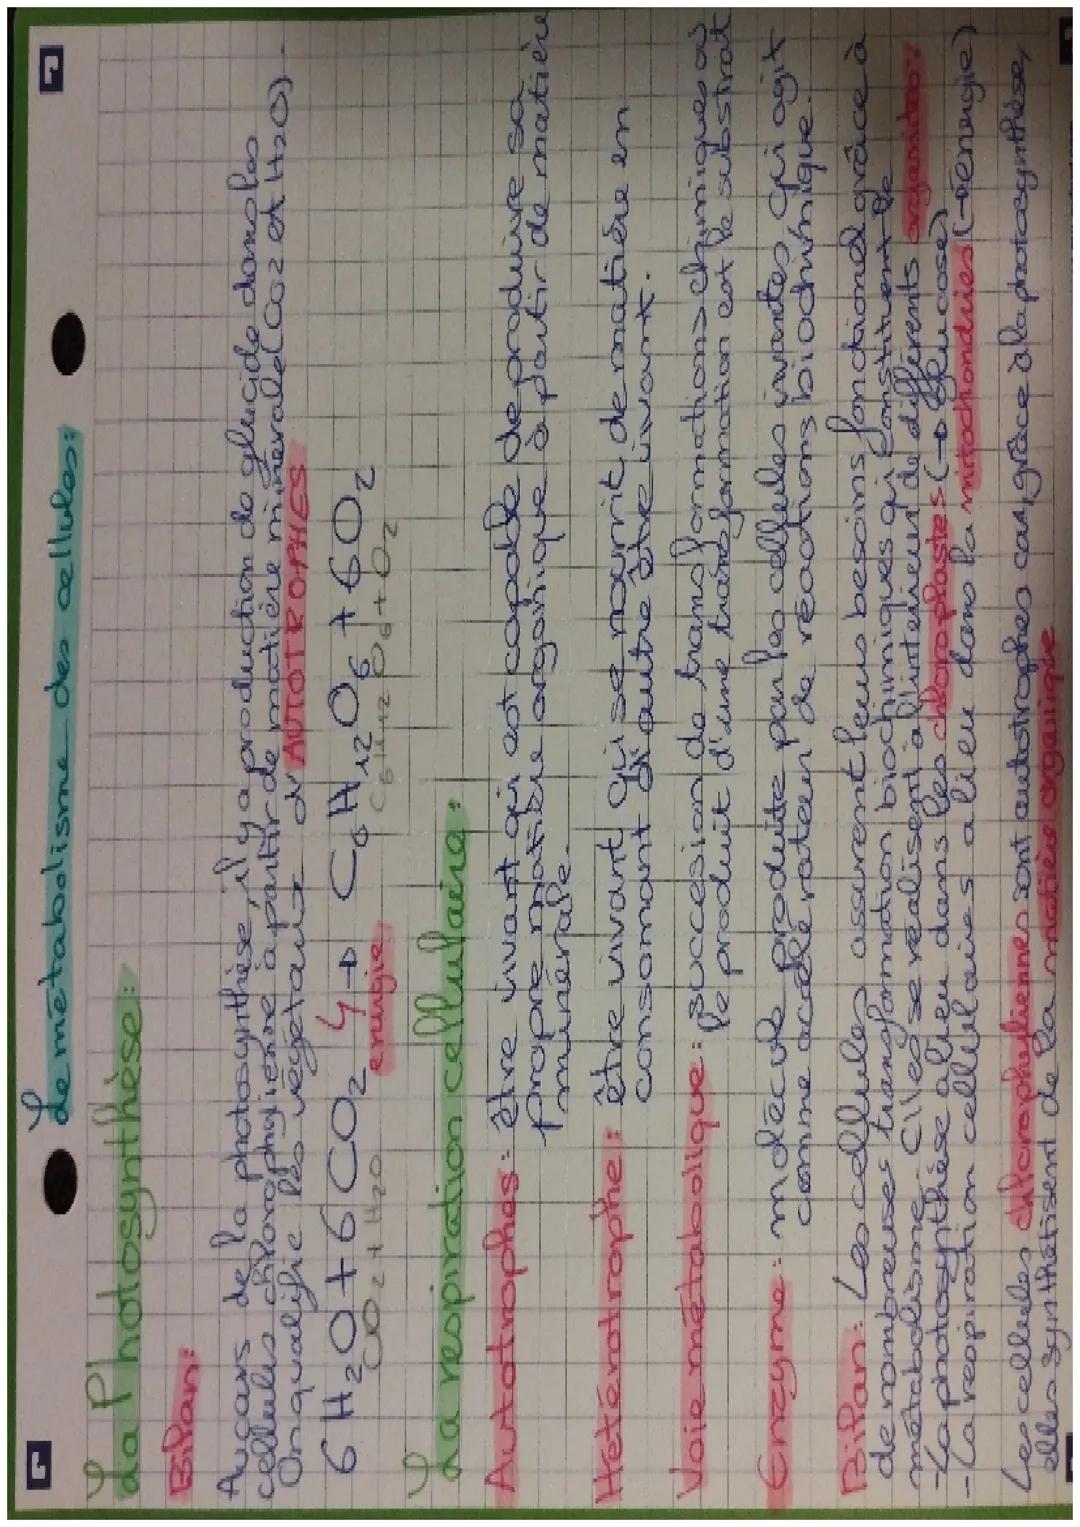 Le métabolisme des cellules:
La Photosynthèse:
Bilan:
Au cours de la photosynthèse, il y a production de glucide dans les
cellules chlorophyliene à partir de matière minérale (CO2 et H2O).
On qualifie les végétaux d'AUTOTROPHES
6 H2O + 6 CO2 → C6H12O6 + 6O2
énergie
CO2 + H2O C6H12O6 + O2
La respiration cellulaire:
Autotrophes: être vivant qui est capable de produire sa
propre matière organique à partir de matière
minérale.
Hétérotrophe: être vivant qui se nourrit de matière en
consomant d'autre être vivant.
Voie métabolique: succession de transformations chimiques où
le produit d'une transformation est le substrat
Enzyme: molécule produite par les cellules vivantes qui agit
comme accélérateur de réactions biochimique.
Bilan: Les cellules assurent leurs besoins fonctionel grâce à
de nombreuses transformation biochimiques qui constituent le
métabolisme. Elles se réalisent à l'intérieur de différents organites:
-La photosynthèse a lieu dans les chloroplastes (→ glucose)
-La respiration cellulaires a lieu dans la mitochondries (→énergie)
Les cellules chlorophyliennes sont autotrophes car, grâce à la photosynthèse,
elles synthétisent de la matière organique